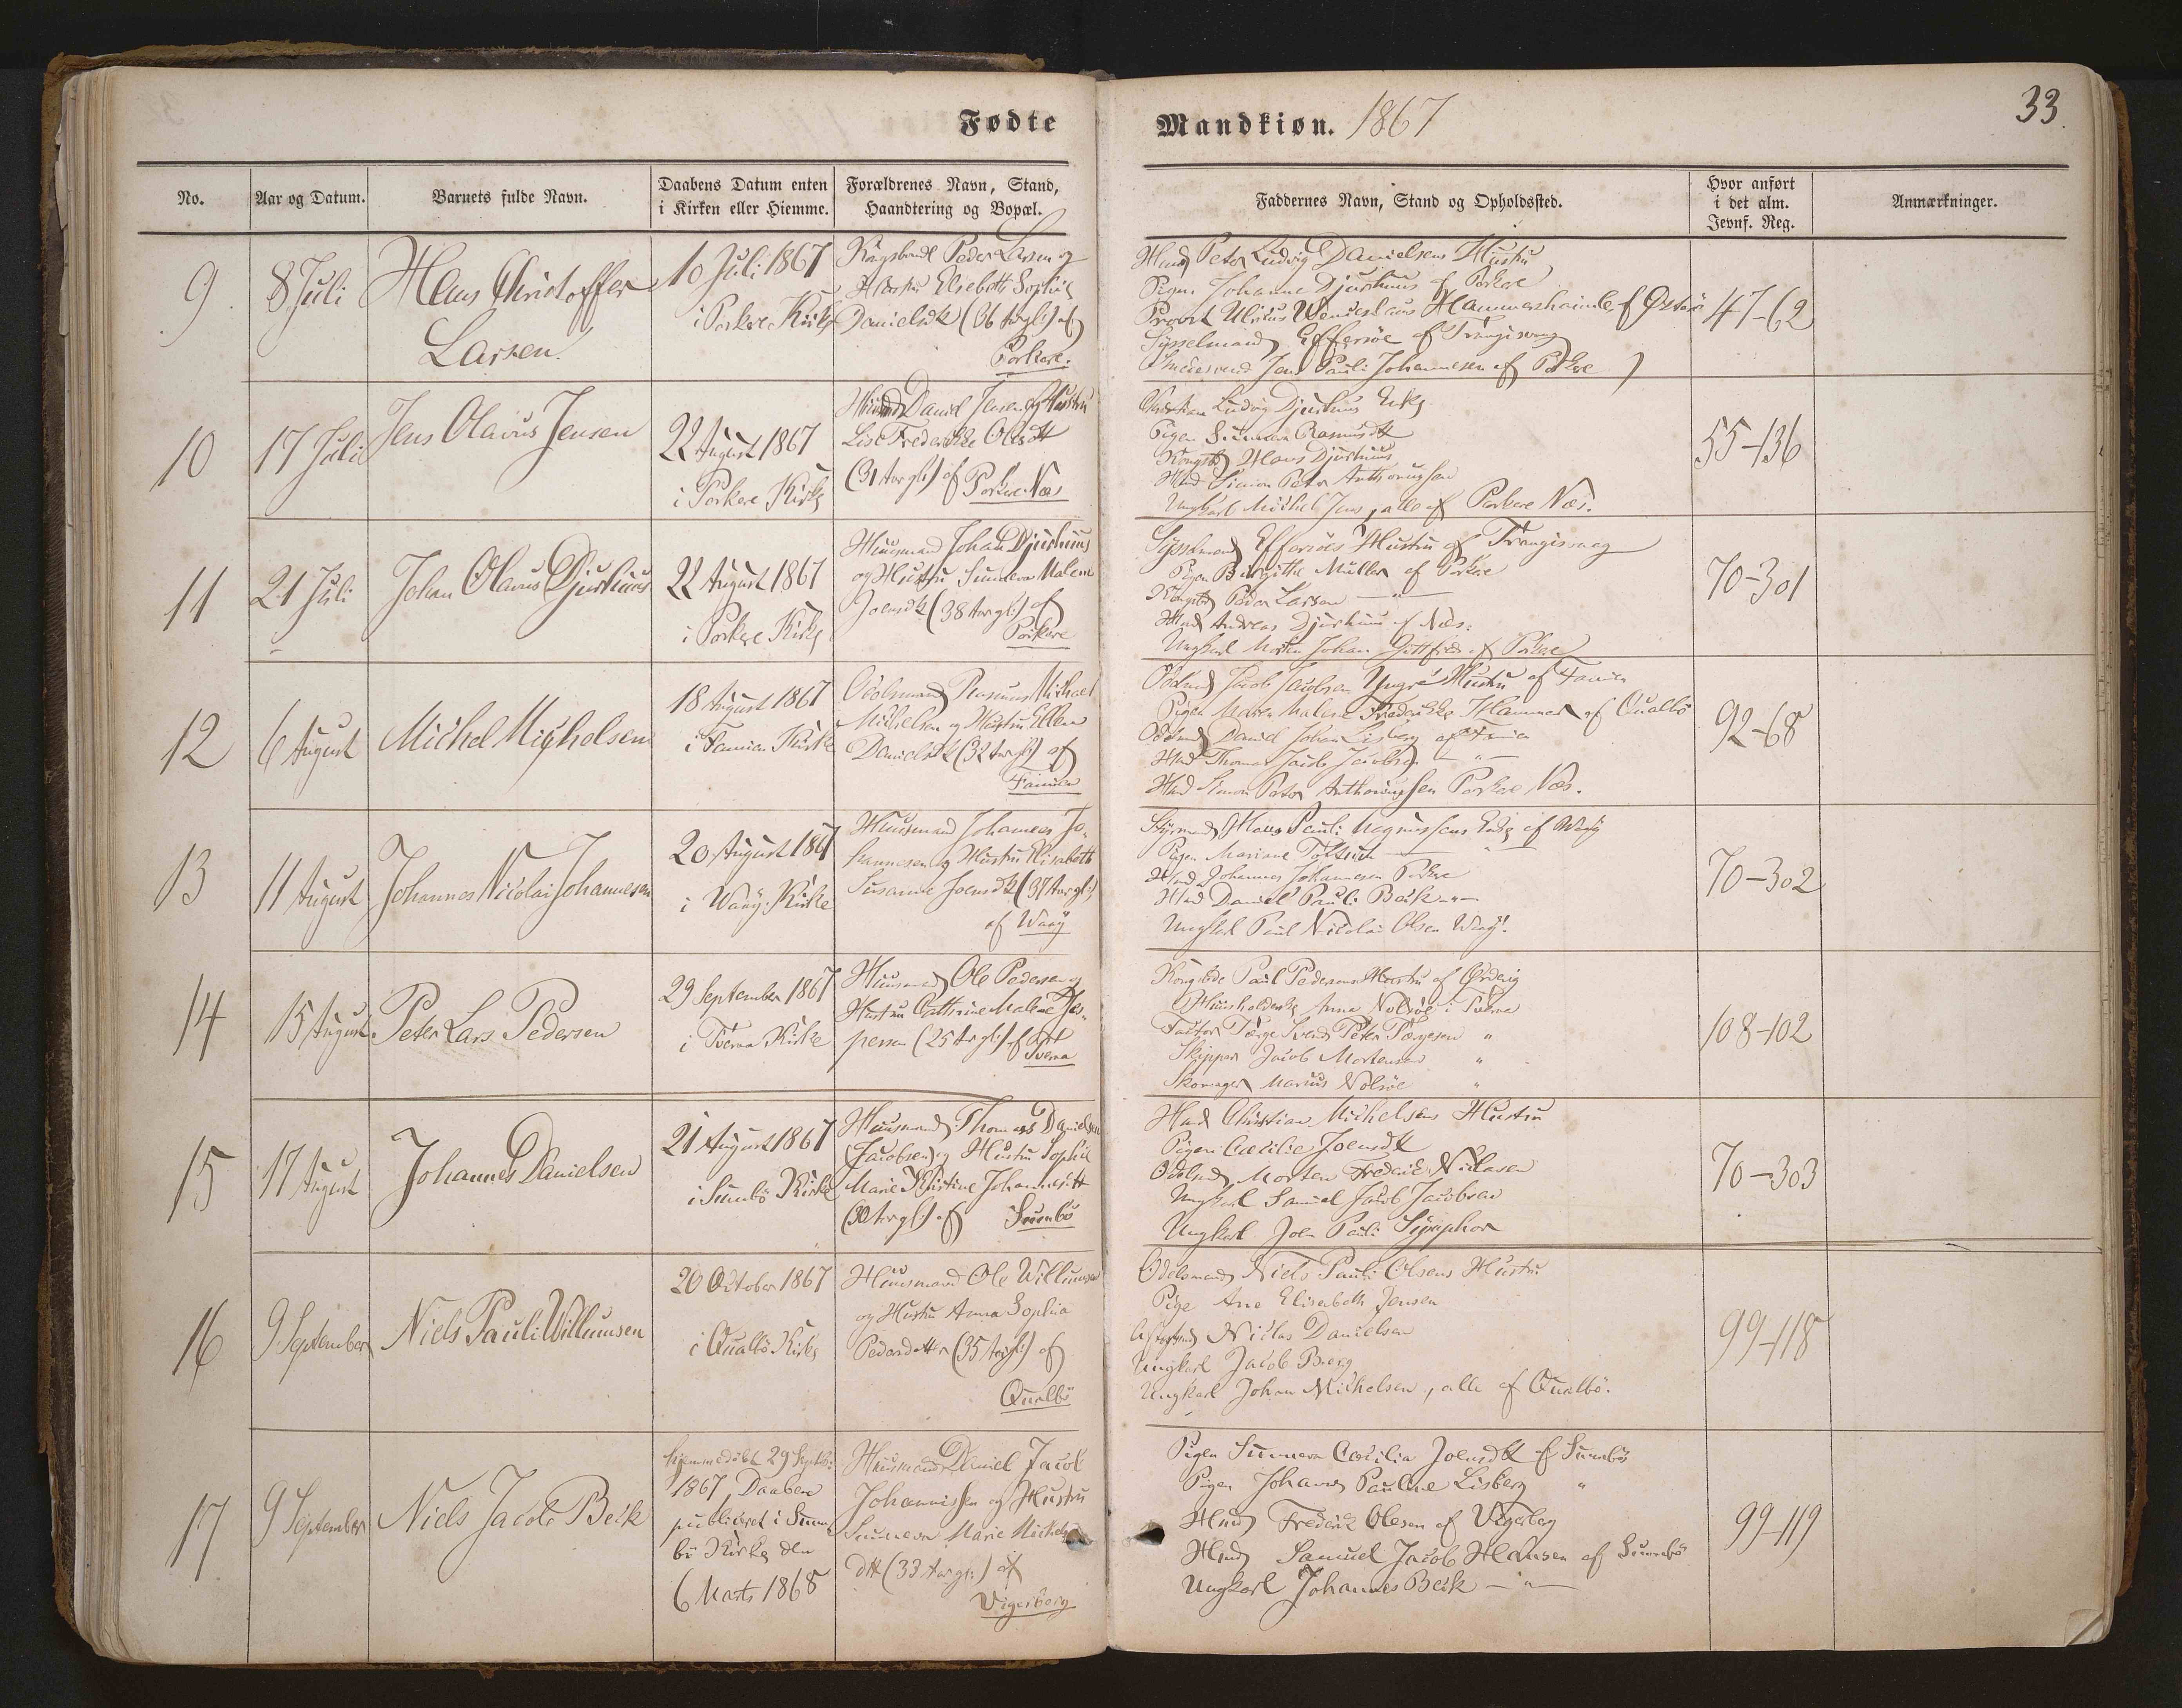 Fødte
Mandkiøn. 1867
33
No.
Aar og Datum.
Barnets fulde Navn.
Daabens Datum enten
i Kirken eller Hiemme.
Forældrenes Navn, Stand,
Haandtering og Bopæl.
Faddernes Navn, Stand og Opholdssted.
Hvor anført
i det alm.
Jevnf. Reg.
Anmærkninger.
9
8 Juli
Hans Christoffer
Larsen
10 Juli 1867
i Porkere Kirke
Kongsbond Peder Larsen og
Hustru Elsebeth Sophie
Danielsdt (36 Aar gl:) af
Porkere.
Huusmd Peter Ludvig Danielsens Hustru
Pigen Johanne Djurhuus af Porkere
Provst Ulricus Wenceslaus Hammershaimb af Østerø
Sysselmand Effersøe af Trangisvaag
Jens Pauli Johannesen af Porkere
47-62
10
17 Juli
Jens Olavus Jensen
22 August 1867
i Porkere Kirke
Huusmd Daniel Jensen og Hustru
Lise Frederikke Olesdtt
(31 Aar gl:) af Porkere Næs
Christian Ludvig Djurhuus Enke
Pigen Sunneva Rasmusdtt
Kongsbd Hans Djurhuus
Hmd Simon Peter Anthoniussen
Ungkarl Michel Jens, alle af Porkere Næs.
55-136
11
21 Juli
Johan Olavus Djurhuus
22 August 1867
i Porkere Kirke
Huusmand Johan Djurhuus
og Hustru Sunneva Malene
Joensdt (38 Aar gl:) af
Porkere
Sysselmand Effersøes Hustru af Trangisvaag
Pigen Birgitte Müller af Porkere
Kongsbd Peder Larsen — " —
Hmd Andreas Djurhuus af Næs.
Ungkarl Morten Johan Gottfred af Porkere
70-301
12
6 August
Michel Michelsen
18 August 1867
i Famien Kirke
Odelsmand Rasmus Michael
Michelsen og Hustru Ellen
Danielsdt (32 Aar gl:) af
Famien
Odelsmd Jacob Jacobsen Yngre's Hustru af Famien
Pigen Maren Malene Frederikke Hammer af Qualbø
Odelsmd Daniel Johan Lisberg af Famien
Hmd Thomas Jacob Jacobsen — " —
Hmd Simon Peter Anthoniussen Porkere Næs.
92-68
13
11 August
Johannes Nicolai Johannesen
20 August 1867
i Waag Kirke
Huusmand Johannes Jo-
hannesen og Hustru Elisabeth
Susanne Joensdt (37 Aar gl:)
af Waag
Styrmand Hans Pauli Magnussens Enke af Waag
Pigen Mariane — " —
Hmd Johannes Johannesen Porkere
Hmd Daniel Pauli Beck — " —
Ungkarl Poul Nicolai Olsen Waag.
70-302
14
15 August
Peter Lars Pedersen
29 September 1867
i Tveraa Kirke
Huusmand Ole Pedersen og
Hustru Cathrine Malene Jes-
persen (25 Aar gl:) af
Tveraa
Kongsbde Paul Pedersens Hustru af Ørdevig
Huusholderske Anna Nolsøe i Tveraa
Factor Peter "
Skipper Jacob Mortensen "
Skomager Marius Nolsøe "
108-102
15
17 August
Johannes Danielsen
21 August 1867
i Sumbø Kirke
Huusmand Thomas Danielsen
(Jacobsen) og Hustru Sophie
Marie Kristine Johannesdtt
(30 Aar gl:) af Sumbø
Hmd Christian Michelsens Hustru
Pigen Cæcilie Joensdt
Odelsmd Morten Frederik Niclasen
Ungkarl Samuel Jacob Jacobsen
Ungkarl Joen Pauli
70-303
16
9 September
Niels Pauli Willumsen
20 October 1867
i Qualbø Kirke
Huusmand Ole Willumsen
og Hustru Anna Sophia
Pedersdatter (35 Aar gl:) af
Qualbø
Odelsmand Niels Pauli Olsens Hustru
Pige Ane Elisabeth Jensen
Niclas Danielsen
Ungkarl Jacob Berg
Ungkarl Johan Michelsen, alle af Qualbø.
99-118
17
9 September
Niels Jacob Beck
Hjemmedøbt 29 Septbr:
1867, Daaben
publiceret i Sum-
bø Kirke den
6 Marts 1868
Huusmand Daniel Jacob
Johannissen og Hustru
Sunneva Marie Michels-
dtt (33 Aar gl:) af
Vigerberg
Pigen Sunneva Cæcilia Joensdt af Sumbø
Pigen Johanne Pauline Lisberg "
Hmd Frederik Olesen af Vigerberg
Hmd Samuel Jacob Hansen af Sumbø
Ungkarl Johannes Beck — " —
99-119